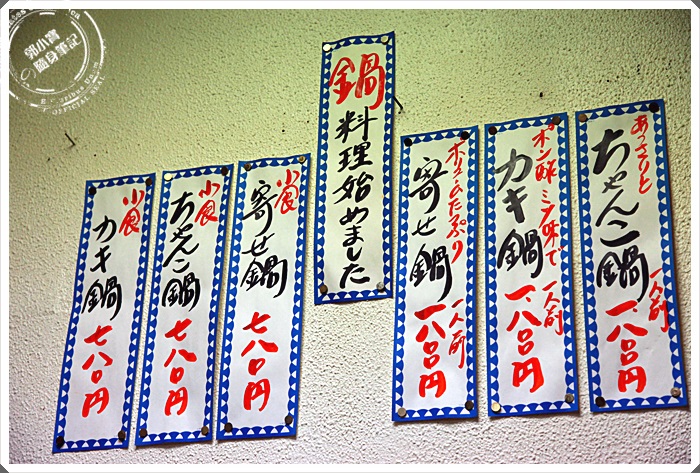 あっさりと
ちゃんこ鍋
一人前
一、八〇〇円
ポン酢 ミソ味で
カキ鍋
一人前
一、八〇〇円
ボリュームたっぷり
寄せ鍋
一人前
一、八〇〇円
鍋料理始めました
小食
寄せ鍋
七八〇円
小食
ちゃんこ鍋
七八〇円
小食
カキ鍋
七八〇円
郭小寶
の隨身筆記
OFFICIAL SEAL